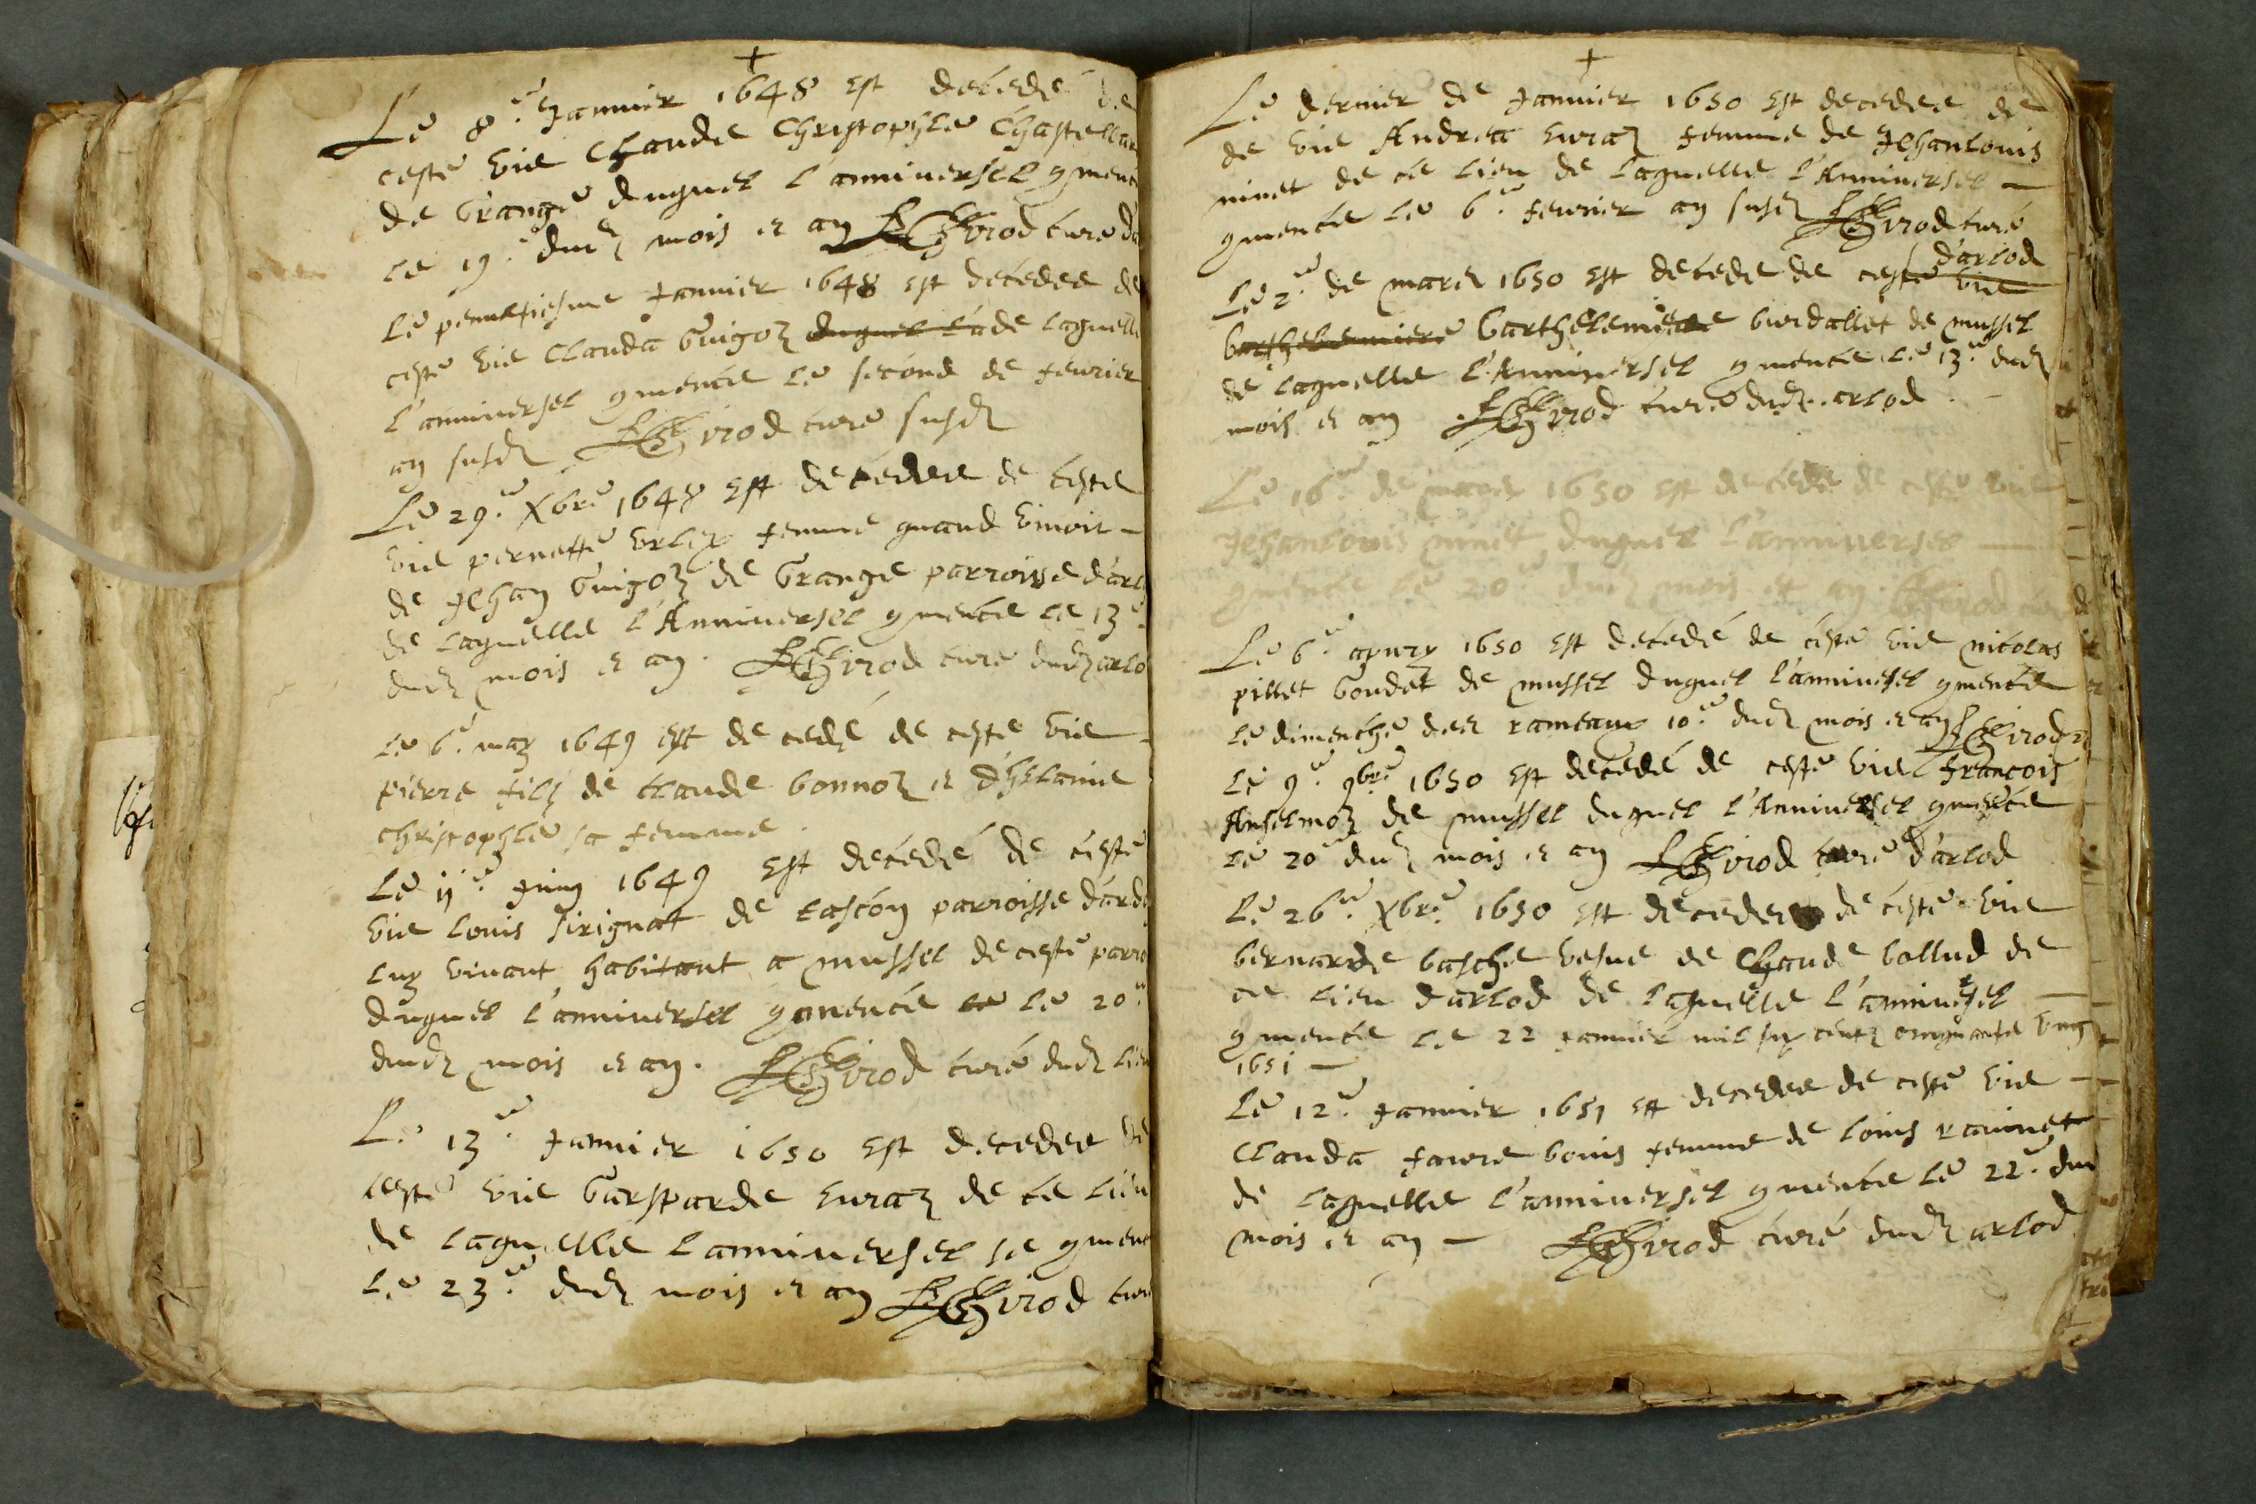 +
Le 8e Januier 1648 est decedé de
ceste vie Claude Christophle Chastellan
de Grange duquel l'anniversel 9mence
le 19e dudz mois et an Girod curé d'a
Le penultiesme Januier 1648 est decedee de
ceste vie Clauda Guigoz duquel la de laquelle
l'anniversel 9mence le second de feurier
an susdz Girod curé susdz
Le 29e Xbre 1648 est decedee de ceste
vie pernette vrlex femme quand viuoit -
de Jehan Guigoz de Grange parroisse d'arl
de laquelle l'Anniversel 9mence le 13e
dudz mois et an. Girod curé dudz arlo
Le 6e may 1649 est decedé de ceste vie
pierre filz de Claude bonnoz et d'helaine
christophle sa femme.
Le 11e Juing 1649 est decedé de ceste
vie louis sirignat de cascon parroisse d'ard
luy viuant habitant a mussel de ceste parro
duquel l'anniversel 9mence le le 20e
dudz mois et an. Girod curé dudz lieu
Le 13e Januier 1650 est decedee de
ceste vie Gasparde Euraz de ce lieu
de laquelle l'anniversel se 9mence
le 23e dudz mois et an Girod curé
+
Le dernier de Januier 1650 est decedee de
de vie Andrea Euraz femme de Jehanlouis
ninet de ce lieu de laquelle l'Anniversel —
9mence le 6e feurier an susdz Girod curé
d'arlod
Le 2e de mars 1650 est decede de ceste vie
barthelemiere barthelemiere burdallet de mussel
de laquelle l'Anniversel 9mence le 13e dudz
mois et an Girod curé dudz arlod.
Le 16e de mars 1650 est decede de ceste vie
Jehanlouis ninet, duquel l'anniversel —
9mence le 20e dudz mois et an. Girod
Le 6e apury 1650 est decedé de ceste vie nicolas
pillet Goudet de mussel duquel l'anniversel 9mence
le dimenche des rameaux 10e dudz mois et an Girod
Le 9e 9bre 1650 est decedé de ceste vie francois
Anselmoz de mussel duquel l'Anniversel 9mence
le 20e dudz mois et an Girod curé d'arlod
Le 26e Xbre 1650 est decedee de ceste vie
bernarde basche vesue de Claude bollud de
ce lieu d'arlod de laquelle l'anniversel —
9mence le 22 Januier mil six centz cinquante vng
1651 —
Le 12e Januier 1651 est decedee de ceste vie —
Clauda faure bouis femme de louis rauinet
de laquelle l'anniversel 9mence le 22e dud
mois et an — Girod curé dudz arlod